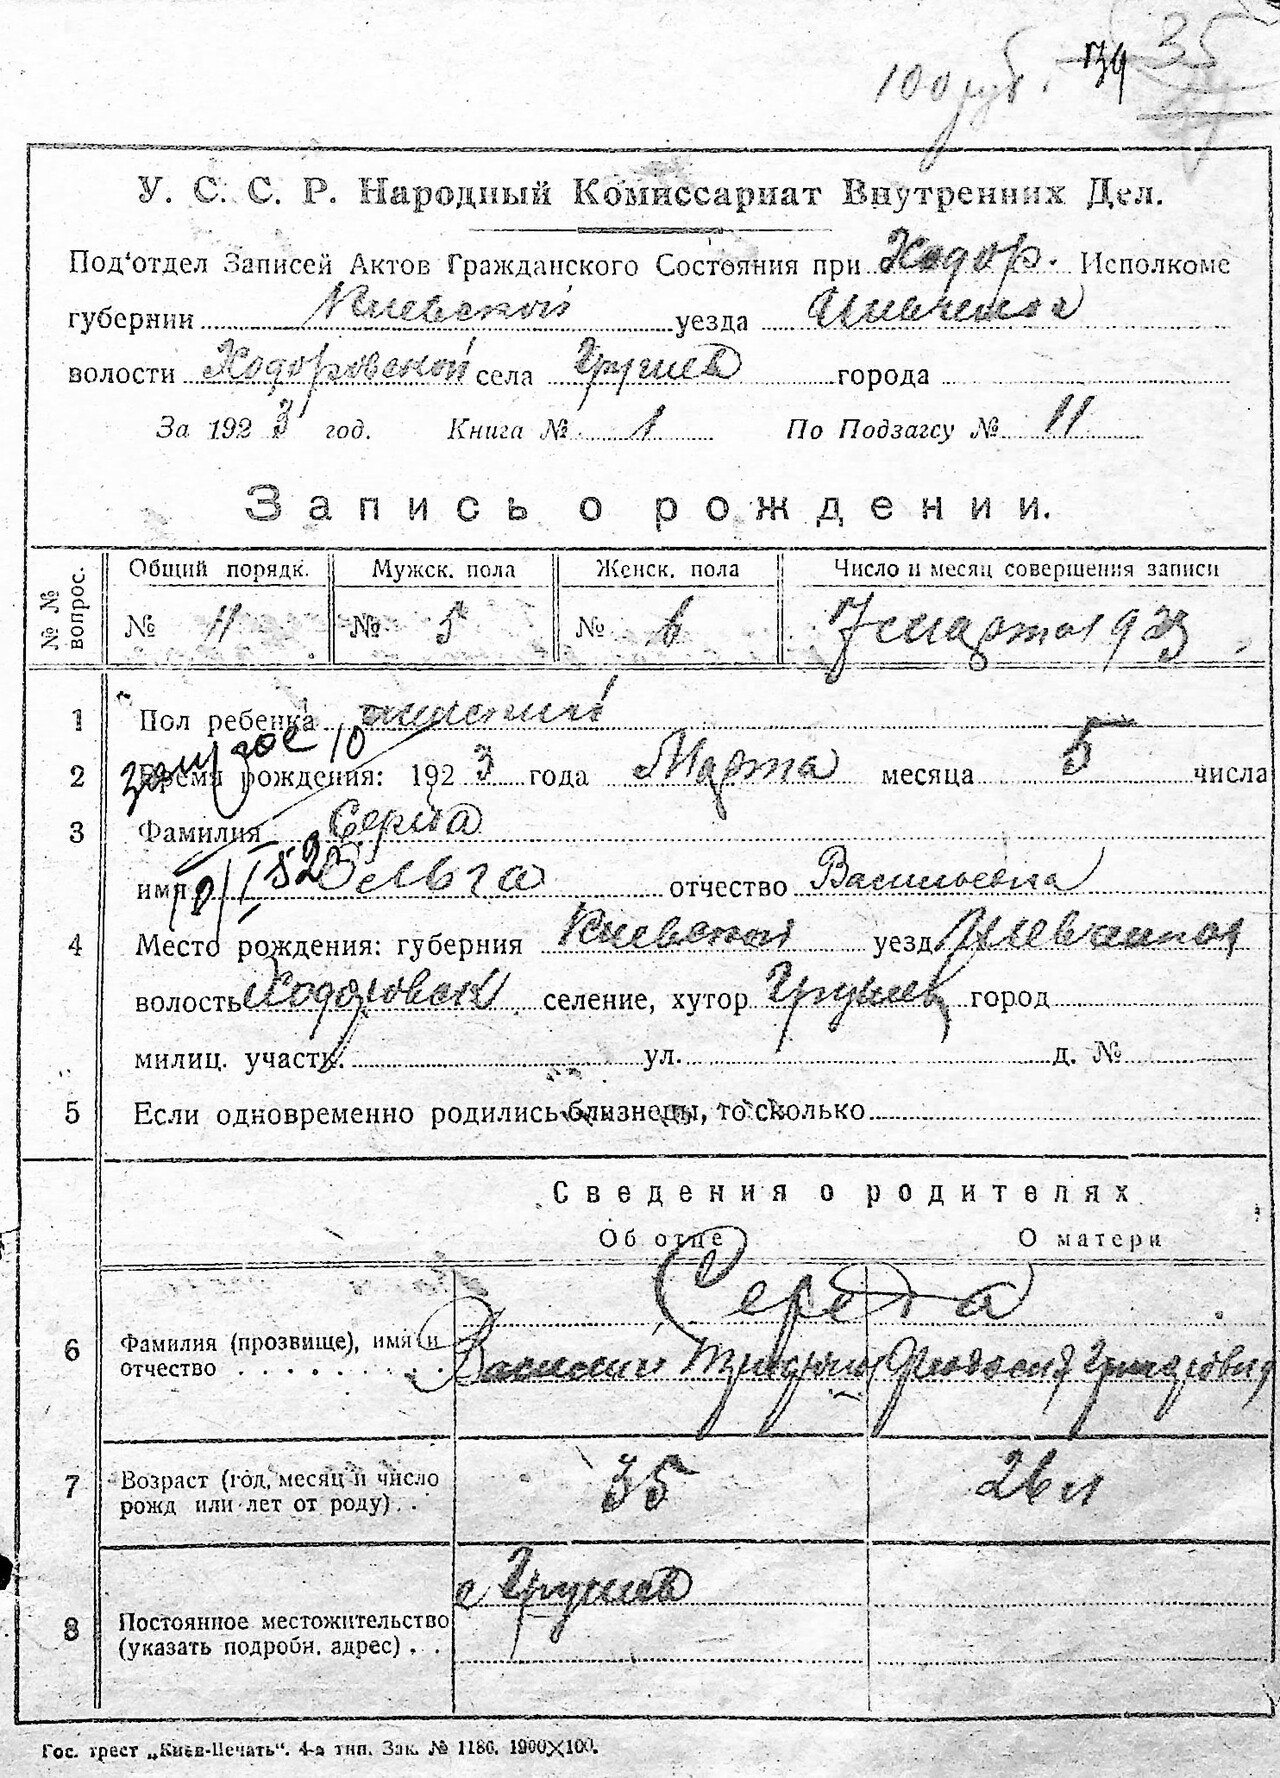 100 руб. 139 35
У. С. С. Р. Народный Комиссариат Внутренних Дел.
Под'отдел Записей Актов Гражданского Состояния при Ходор. Исполкоме
губернии Киевской уезда Шевченков
волости Ходоровской села Грушев города
За 1923 год. Книга № 1 По Подзагсу № 11
Запись о рождении.
№№ вопрос. Общий порядк. Мужск. пола Женск. пола Число и месяц совершения записи
№ 11 № 5 № 6 7 марта 1923
1 Пол ребенка женский
10
2 Время рождения: 1923 года Марта месяца 5 числа
3 Фамилия Середа
имя Ольга отчество Васильевна
10/I 52
4 Место рождения: губерния Киевской уезд
волость Ходоровск селение, хутор Грушев город
милиц. участь. ул. д. №
5 Если одновременно родились близнецы, то сколько
Сведения о родителях
Об отце О матери
Середа
6 Фамилия (прозвище), имя и
отчество Василий Феодосия
7 Возраст (год, месяц и число
рожд или лет от роду) 35 26 л
с Грушев
8 Постоянное местожительство
(указать подробн. адрес)
Гос. трест „Киев-Печать“. 4-а тип. Зак. № 1186. 1900×100.